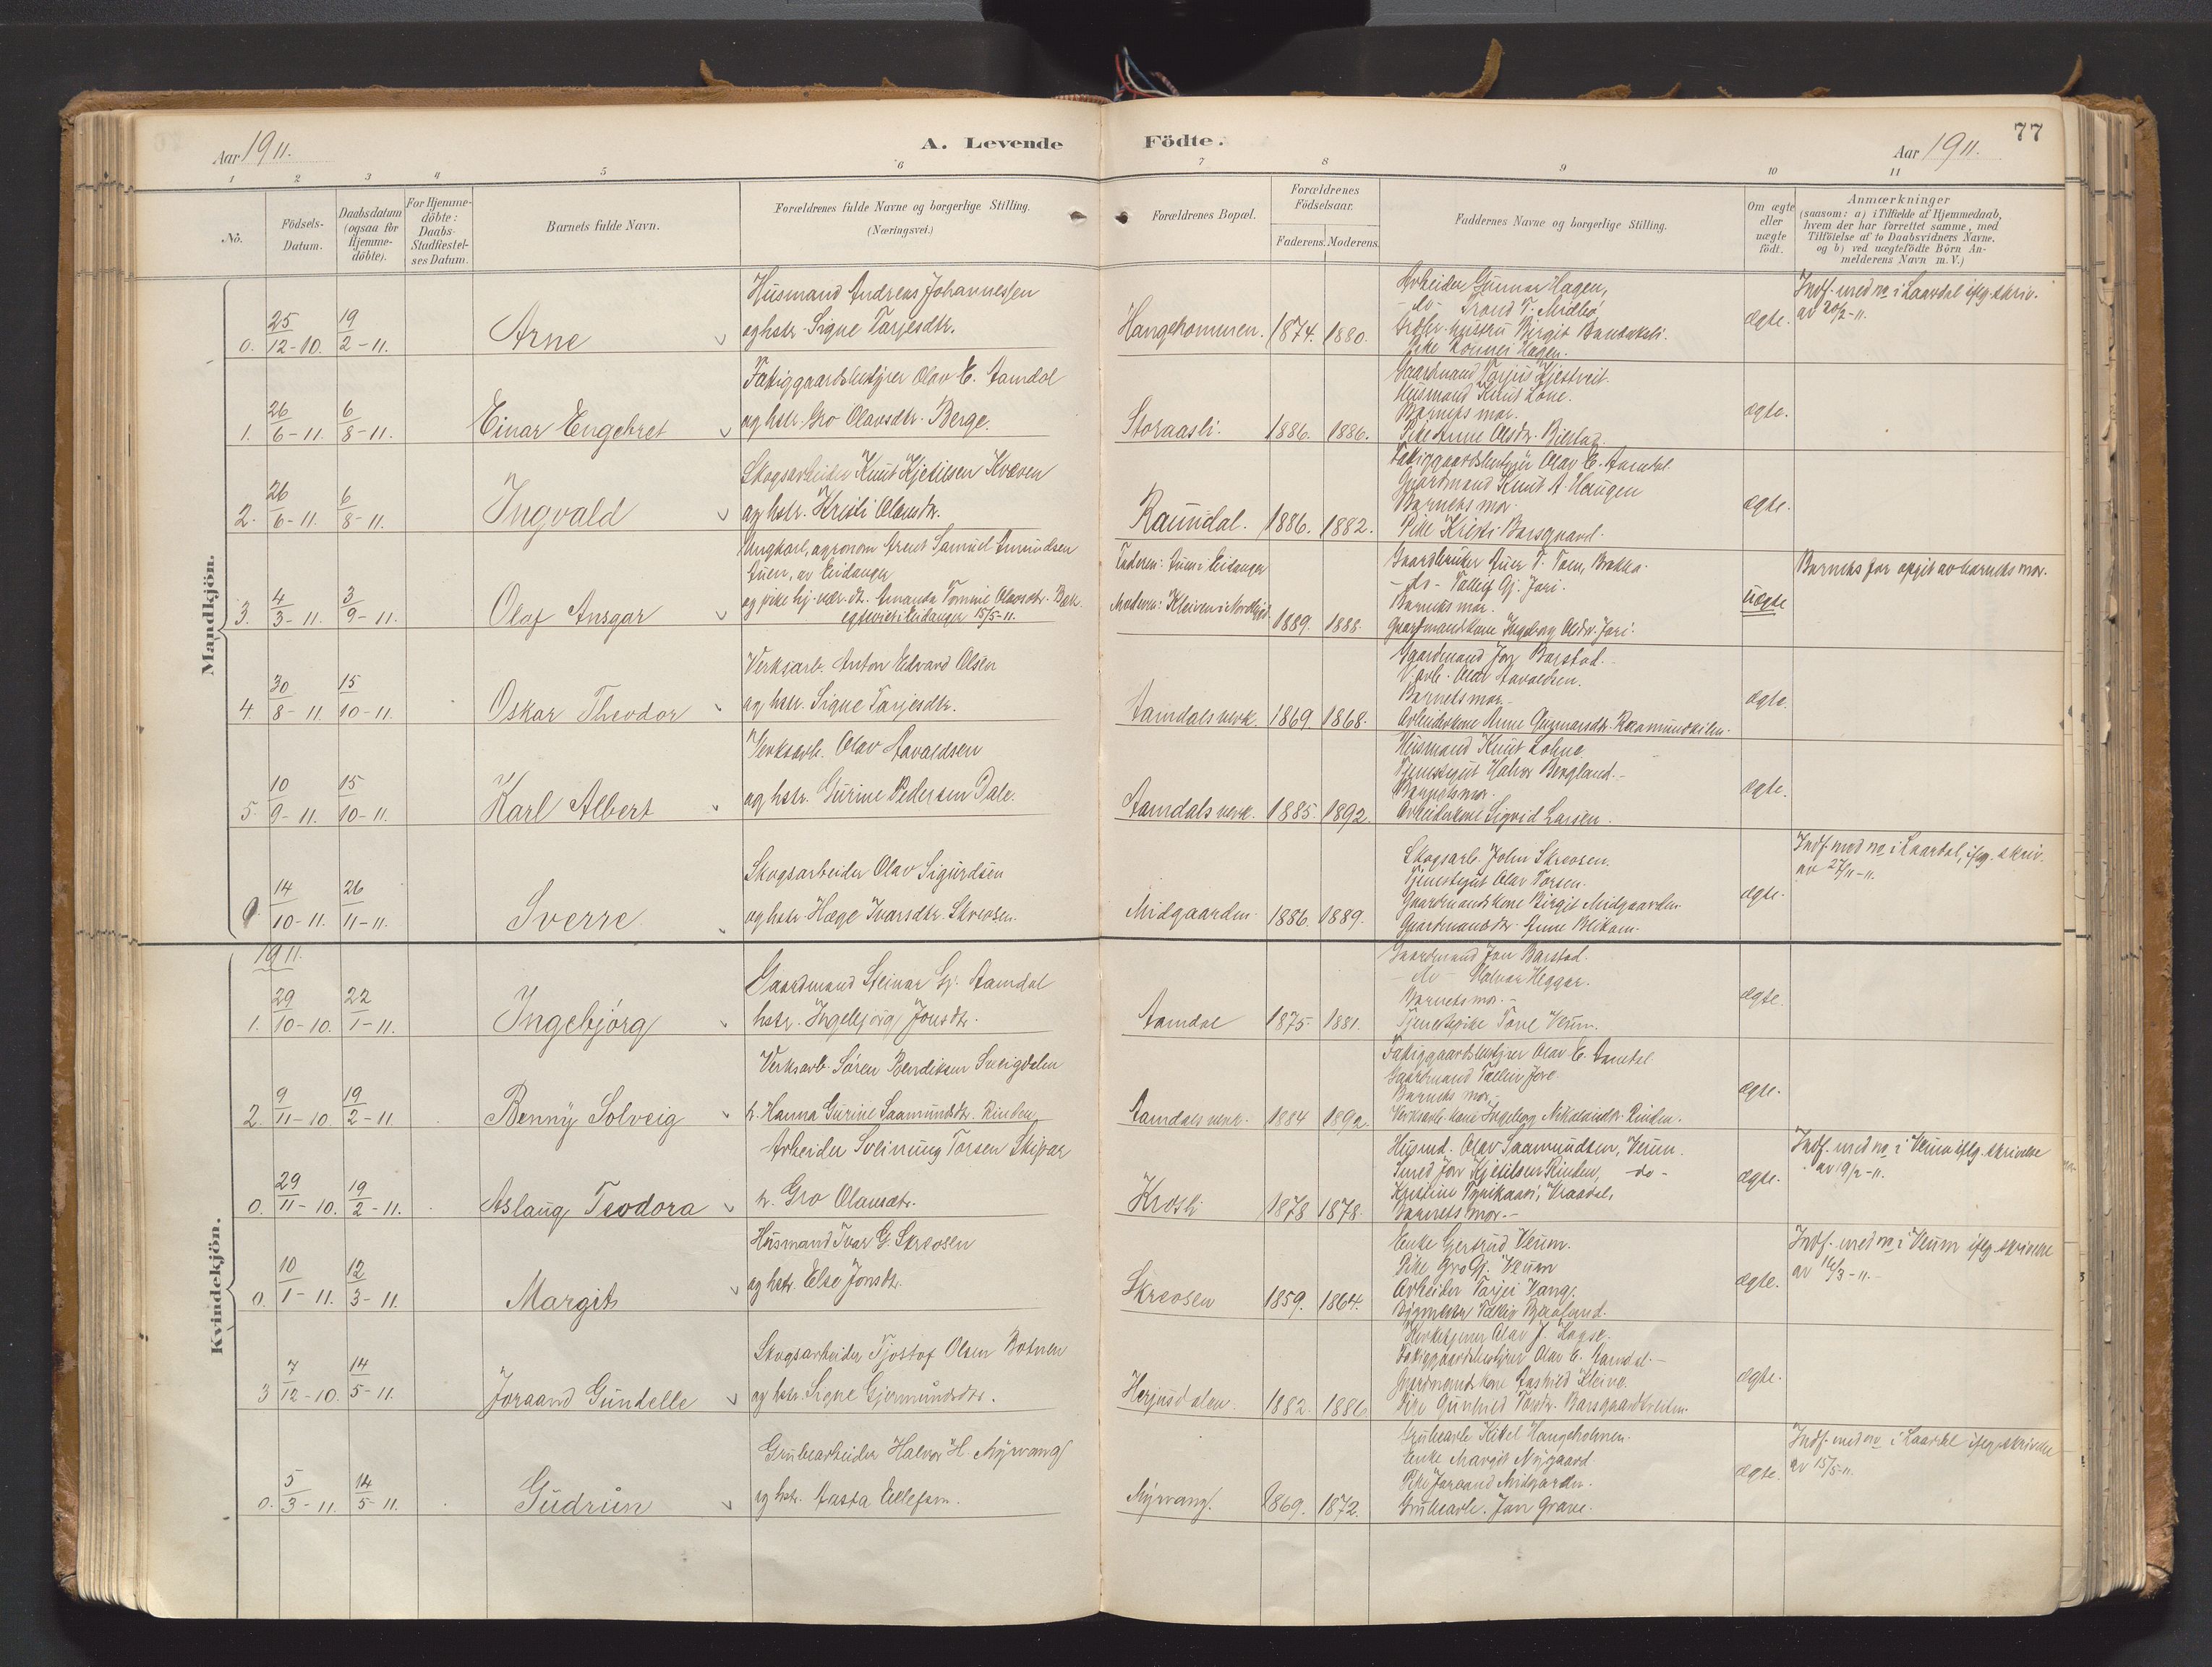 Aar 1911.
A. Levende
Födte.
77
Aar 1911.
1 2 3 4 5 6 7 8 9 10 11
No.
Födsels-Datum.
Daabsdatum (ogsaa for Hjemme-döbte).
For Hjemme-döbte: Daabs-Stadfæstel-ses Datum.
Barnets fulde Navn.
Forældrenes fulde Navne og borgerlige Stilling.
(Næringsvei.)
Forældrenes Bopæl.
Forældrenes Födselsaar.
Faderens. Moderens.
Faddernes Navne og borgerlige Stilling.
Om ægte eller uægte födt.
Anmærkninger
(saasom: a) i Tilfælde af Hjemmedaab,
hvem der har forrettet samme, med
Tilföielse af to Daabsvidners Navne,
og b) ved uægtefödte Börn An-
melderens Navn m. V.)
Mandkjön.
0. 25/12-10. 19/2-11. Arne
Husmand Andreas Johannessen
og hstr. Signe Tarjesdtr.
1874. 1880.
Arbeider Gunnar Hagen,
-do- Trond T. Midbö
ægte.
Indf. med no i Laardal iflg. skriv.
av 20/2-11.
1. 26/6-11. 6/8-11. Einar Engebret
Fattiggaardsbestyrer Olav E. Aamdal
og hstr. Gro Olavsdtr. Berge.
Storaasli. 1886. 1886.
Husmand Knut Lone.
Barnets mor.
ægte.
2. 26/6-11. 6/8-11. Ingvald
Skogsarbeider Knut Kjetilsen Kvæven
og hstr. Kristi Olavsdtr.
Raundal. 1886. 1882.
Fattiggaardsbestyrer Olav E. Aamdal.
Gaardmand Knut A. Haugen
Barnets mor.
Pike Kristi Barsgaard.
ægte.
3. 4/3-11. 3/9-11. Olaf Ansgar
Ungkarl, agronom Arent Samuel Amundsen
Auen, av Eidanger
og pike hj. vær. dt. Amanda Tomine Olavsdtr. Bæk.
egteviet i Eidanger 15/5-11.
Faderen: Auen i Eidanger
Moderen: Kleiven i
1889. 1888.
Barnets mor.
uægte
Barnets far opgit av barnets mor.
4. 30/8-11. 15/10-11. Oskar Theodor
Verksarb. Anton Edvard Olsen
og hstr. Signe Tarjesdtr.
Aamdals verk. 1869 1868.
Gaardmand Jon Barstad.
V.arb. Olav Aavaldsen.
Barnets mor.
Arbeiderkone Anne Gunnarsdtr.
ægte.
5. 10/9-11. 15/10-11. Karl Albert
Verksarb. Olav Aavaldsen
og hstr. Gurine Pedersen Dale.
Aamdals verk. 1885. 1892.
Husmand Knut Lohne
Tjenestegut Halvor Bergland.
Barnets mor.
Arbeiderkone Sigrid Larsen.
ægte.
0. 14/10-11. 26/11-11. Sverre
Skogsarbeider Olav Sigurdsen
og hstr. Hæge Ivarsdtr. Skreosen.
Midgaarden. 1886. 1889.
Skogsarb. John Skreosen.
Tjenestegut Olav Torsen.
Gaardmandskone Birgit Midgaarden
ægte.
Indf. med no i Laardal, iflg. skriv.
av 27/11-11.
Kvindekjön.
1911.
1. 29/10-10. 22/1-11. Ingebjörg
Gaardmand Steinar Gj. Aamdal
hstr. Ingebjörg Jonsdtr.
Aamdal 1875. 1881.
Gaardmand Jon Barstad.
-do- Halvor Heggar.
Barnets mor.-
Tjenestepike Tone Veum.
ægte.
2. 9/11-10. 19/2-11. Benny Solveig
Verksarb. Søren Bendiksen Sveigdalen
h. Hanna Gurine Saamundsdtr. Rinden
Aamdals verk. 1884 1892.
Fattiggaardsbestyrer Olav E. Aamdal.
Barnets mor.
ægte.
0. 29/11-10. 19/2-11. Aslaug Teodora
Arbeider Sveinung Torsen Skipar
h. Gro Olavsdtr.
Krosli 1878 1878.
Husmd. Olav Saamundsen, Veum.
Smed Jon Kjetilsen Rinden, -do-
Barnets mor.-
ægte.
Indf. med no i Veum iflg. skrivelse
av 19/2-11.
0. 10/1-11. 12/3-11. Margit
Husmand Ivar G. Skreosen
og hstr. Else Jonsdtr.
Skreosen 1859. 1864.
Enke Gertrud Veum.
Pike Gro Gj. Veum
Arbeider Tarjei Vang.
ægte.
Indf. med no i Veum iflg. skrivelse
av 14/3-11.
3 7/12-10. 14/5-11. Joraand Gundelle
Skogsarbeider Tjostof Olsen Botnen
og hstr. Signe Gjermundsdtr.
Herjusdalen. 1882. 1886
Fattiggaardsbestyrer Olav E. Aamdal.-
ægte.
0. 5/3-11. 14/5-11. Gudrun
Grubearbeider Halvor H. Nyvang
og hstr. Aasta Ellefsen.
Nyvang. 1869. 1872.
Enke Margit Nygaard
Pike Joraand Midgarden.
Grubearb. Jon Grave.
ægte.
Indf. med no i Laardal iflg. skrivelse
av 15/5-11.